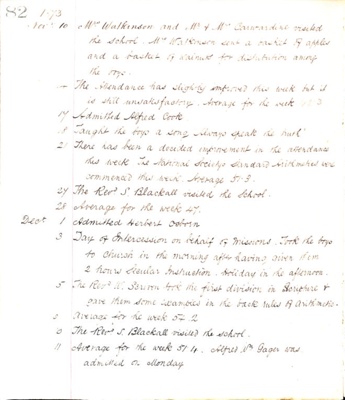 82 1873
Novr 10 Mrs Watkinson and Mr & Mrs Carwardine visited
the school. Mrs Watkinson sent a basket of apples
and a basket of walnuts for distribution among
the boys.
14 The Attendance has slightly improved this week but it
is still unsatisfactory. Average for the week
17 Admitted Alfred Cook
18 Taught the boys a song, Always speak the truth
21 There has been a decided improvement in the attendance
this week. The National Society's Standard Arithmetics were
commenced this week. Average 51.3.
27 The Revd S. Blackall visited the School.
28 Average for the week 47.
Decr 1 Admitted Herbert Osborn
3 Day of Intercession on behalf of Missions. Took the boys
to Church in the morning after having given them
2 hours Secular Instruction. Holiday in the afternoon.
5 The Revd took the first division in Scripture &
gave them some examples in the back rules of Arithmetic.
Average for the week 52.2
The Revd S. Blackall visited the school.
11 Average for the week 51.4. Alfred Wm Gager was
admitted on Monday